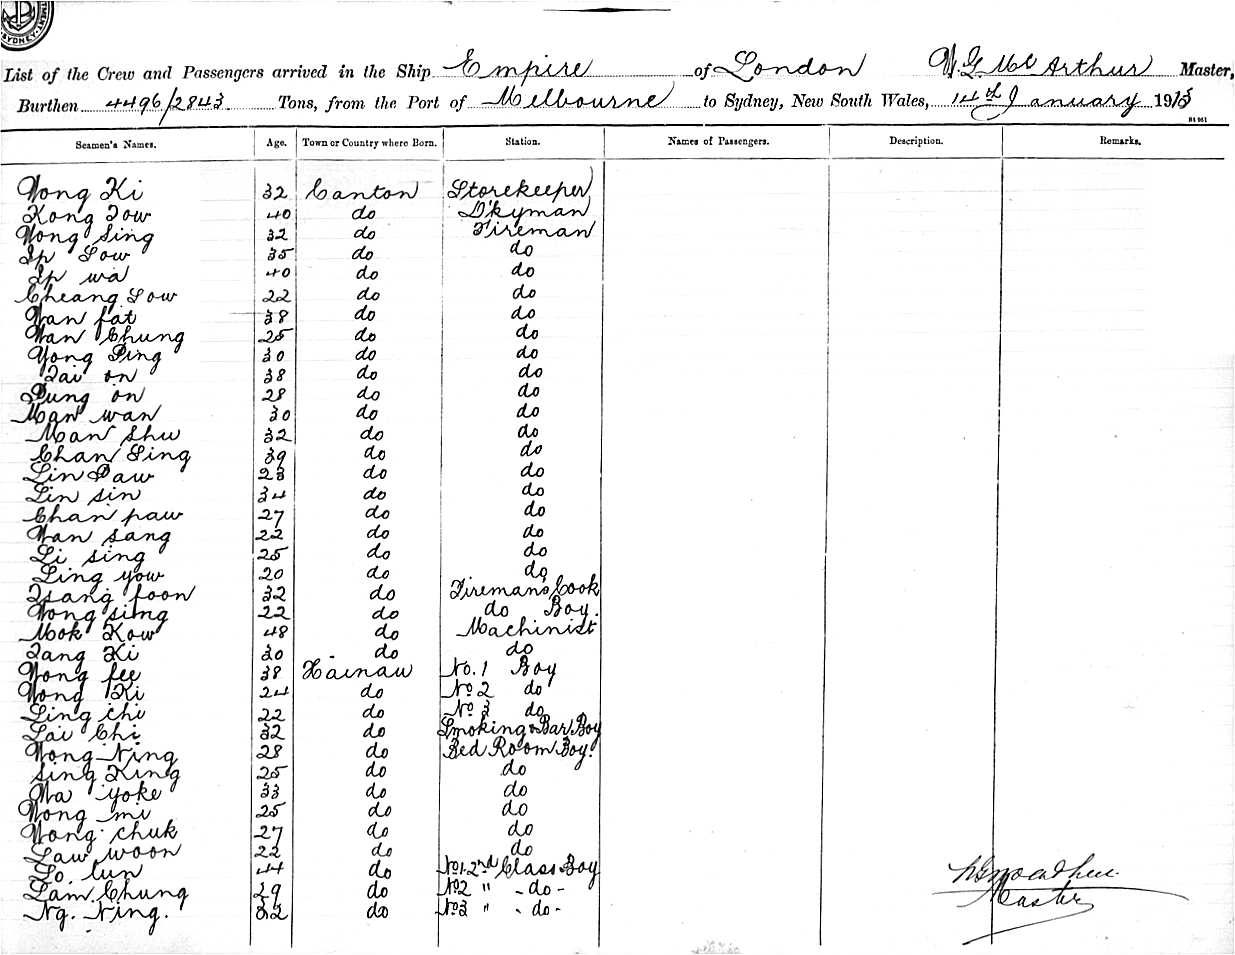 SYDNEY
List of the Crew and Passengers arrived in the Ship Empire of London W. G. Mc Arthur Master,
Burthen 4496/2843 Tons, from the Port of Melbourne to Sydney, New South Wales, 14th January 1915
Seamen's Names. Age. Town or Country where Born. Station. Names of Passengers. Description. Remarks.
Wong Ki 32 Canton Storekeeper
Kong Tow 40 do D'kyman
Wong Sing 32 do Fireman
Ip Sow 35 do do
Ip wa 40 do do
Cheang Sow 22 do do
Wan fat 38 do do
Wan Chung 25 do do
Yong Ping 30 do do
Tai on 38 do do
Pung on 28 do do
Man wan 30 do do
Man Shu 32 do do
Chan Sing 39 do do
Lin Paw 23 do do
Lin sin 34 do do
Chan paw 27 do do
Wan sang 22 do do
Li sing 25 do do
Ling yow 20 do do
Tsang foon 32 do Fireman's Cook
Wong sing 22 do do Boy.
Mok Kow 48 do Machinist
Tang Ki 30 do do
Wong fee 38 Hainaw No. 1 Boy
Wong Ki 24 do No 2 do
Ling chi 22 do No 3 do
Lai Chi 32 do Smoking & Bar Boy
Wong Ning 28 do Bed Room Boy.
Sing King 25 do do
Wa yoke 33 do do
Wong mi 25 do do
Wong chuk 27 do do
Law woon 22 do do
Lo. lun 44 do No1. 2nd Class Boy
Lam Chung 29 do No2 " - do -
Ng. Ning. 32 do No3 " - do -
Master